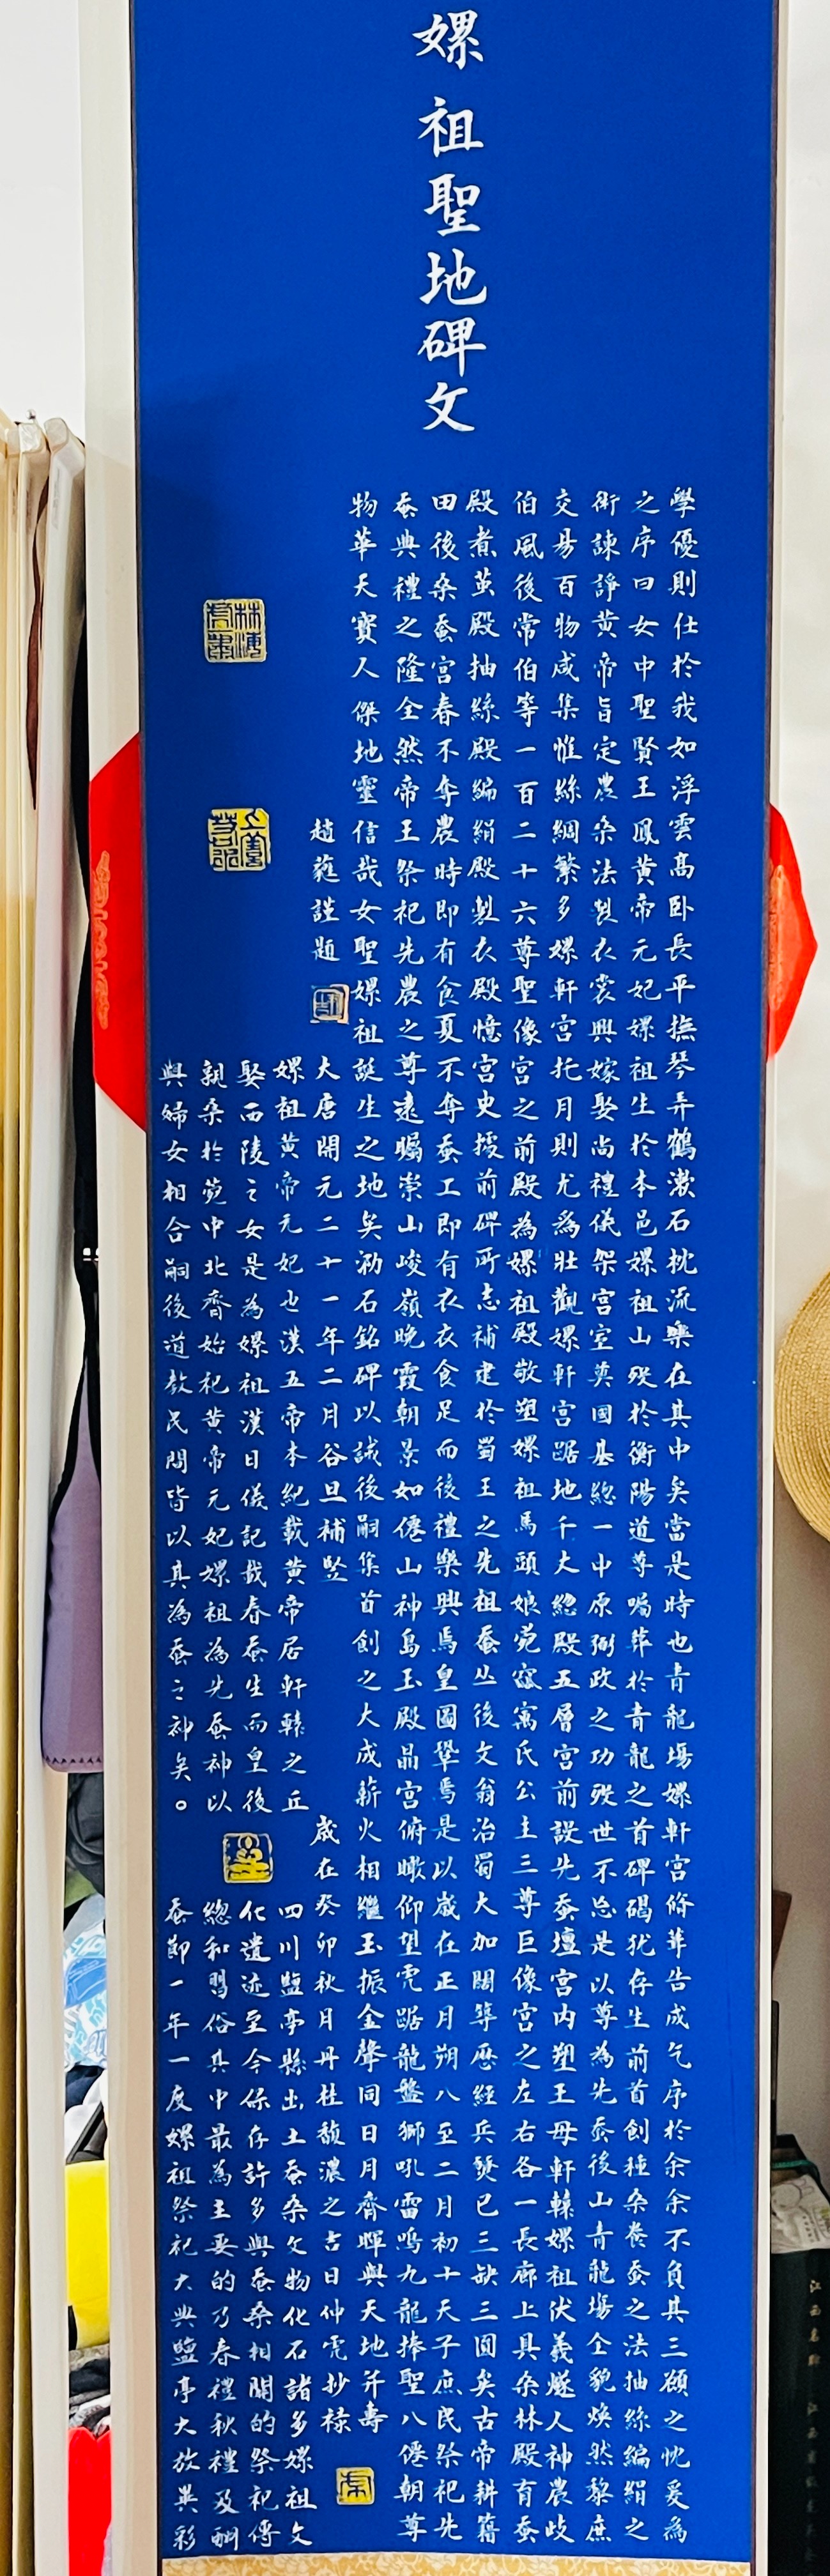 嫘祖聖地碑文
學優則仕於我如浮雲高卧長平撫琴弄鶴漱石枕流樂在其中矣當是時也青龍場嫘軒宮修葺告成乞序於余余不負其三顧之忱爰為
之序曰女中聖賢王鳳黃帝元妃嫘祖生於本邑嫘祖山歿於衡陽道尊囑葬於青龍之首碑碣犹存生前首創種桑養蚕之法抽絲編絹之
術諫諍黃帝旨定農桑法製衣裳興嫁娶尚禮儀架宮室奠國基総一中原弼政之功歿世不忘是以尊為先蚕後山青龍場全貌煥然黎庶
交易百物咸集惟絲綢繁多嫘軒宮托月則尤為壯觀嫘軒宮踞地千大総殿五層宮前設先蚕壇宮內塑王母軒轅嫘祖伏義燧人神農岐
伯風後常伯等一百二十六尊聖像宮之前殿為嫘祖殿敬塑嫘祖馬頭娘菀窳寓氏公主三尊巨像宮之左右各一長廊上具桑林殿育蚕
殿煮茧殿抽絲殿編絹殿製衣殿憶宮史據前碑所志補建於蜀王之先祖蚕丛後文翁治蜀大加闊築歷經兵燹已三缺三圓矣古帝耕籍
田後桑蚕宮春不夺農時即有食夏不夺蚕工即有衣衣食足而後禮樂興焉皇圖鞏焉是以歲在正月朔八至二月初十天子庶民祭祀先
蚕典禮之隆全然帝王祭祀先農之尊遠矚崇山峻嶺晚霞朝景如僊山神島玉殿晶宮俯瞰仰望虎踞龍盤獅吼雷鳴九龍捧聖八僊朝尊
物華天寶人傑地靈信哉女聖嫘祖誕生之地矣泐石銘碑以誡後嗣集首創之大成薪火相繼玉振金聲同日月齊暉與天地并壽
趙蕤謹題
大唐開元二十一年二月谷旦補竪
歲在癸卯秋月丹桂馥濃之吉日仲虎抄祿
嫘祖黃帝元妃也漢五帝本紀載黃帝居軒轅之丘
娶西陵之女是為嫘祖漢日儀記載春蚕生而皇後
親桑於菀中北齊始祀黃帝元妃嫘祖為先蚕神以
與婦女相合嗣後道教民間皆以其為蚕之神矣。
四川盬亭縣出土蚕桑文物化石諸多嫘祖文
化遺迹至今保存許多與蚕桑相關的祭祀傳
總和習俗其中最為主要的乃春禮秋禮及酬
蚕節一年一度嫘祖祭祀大典盬亭大放異彩